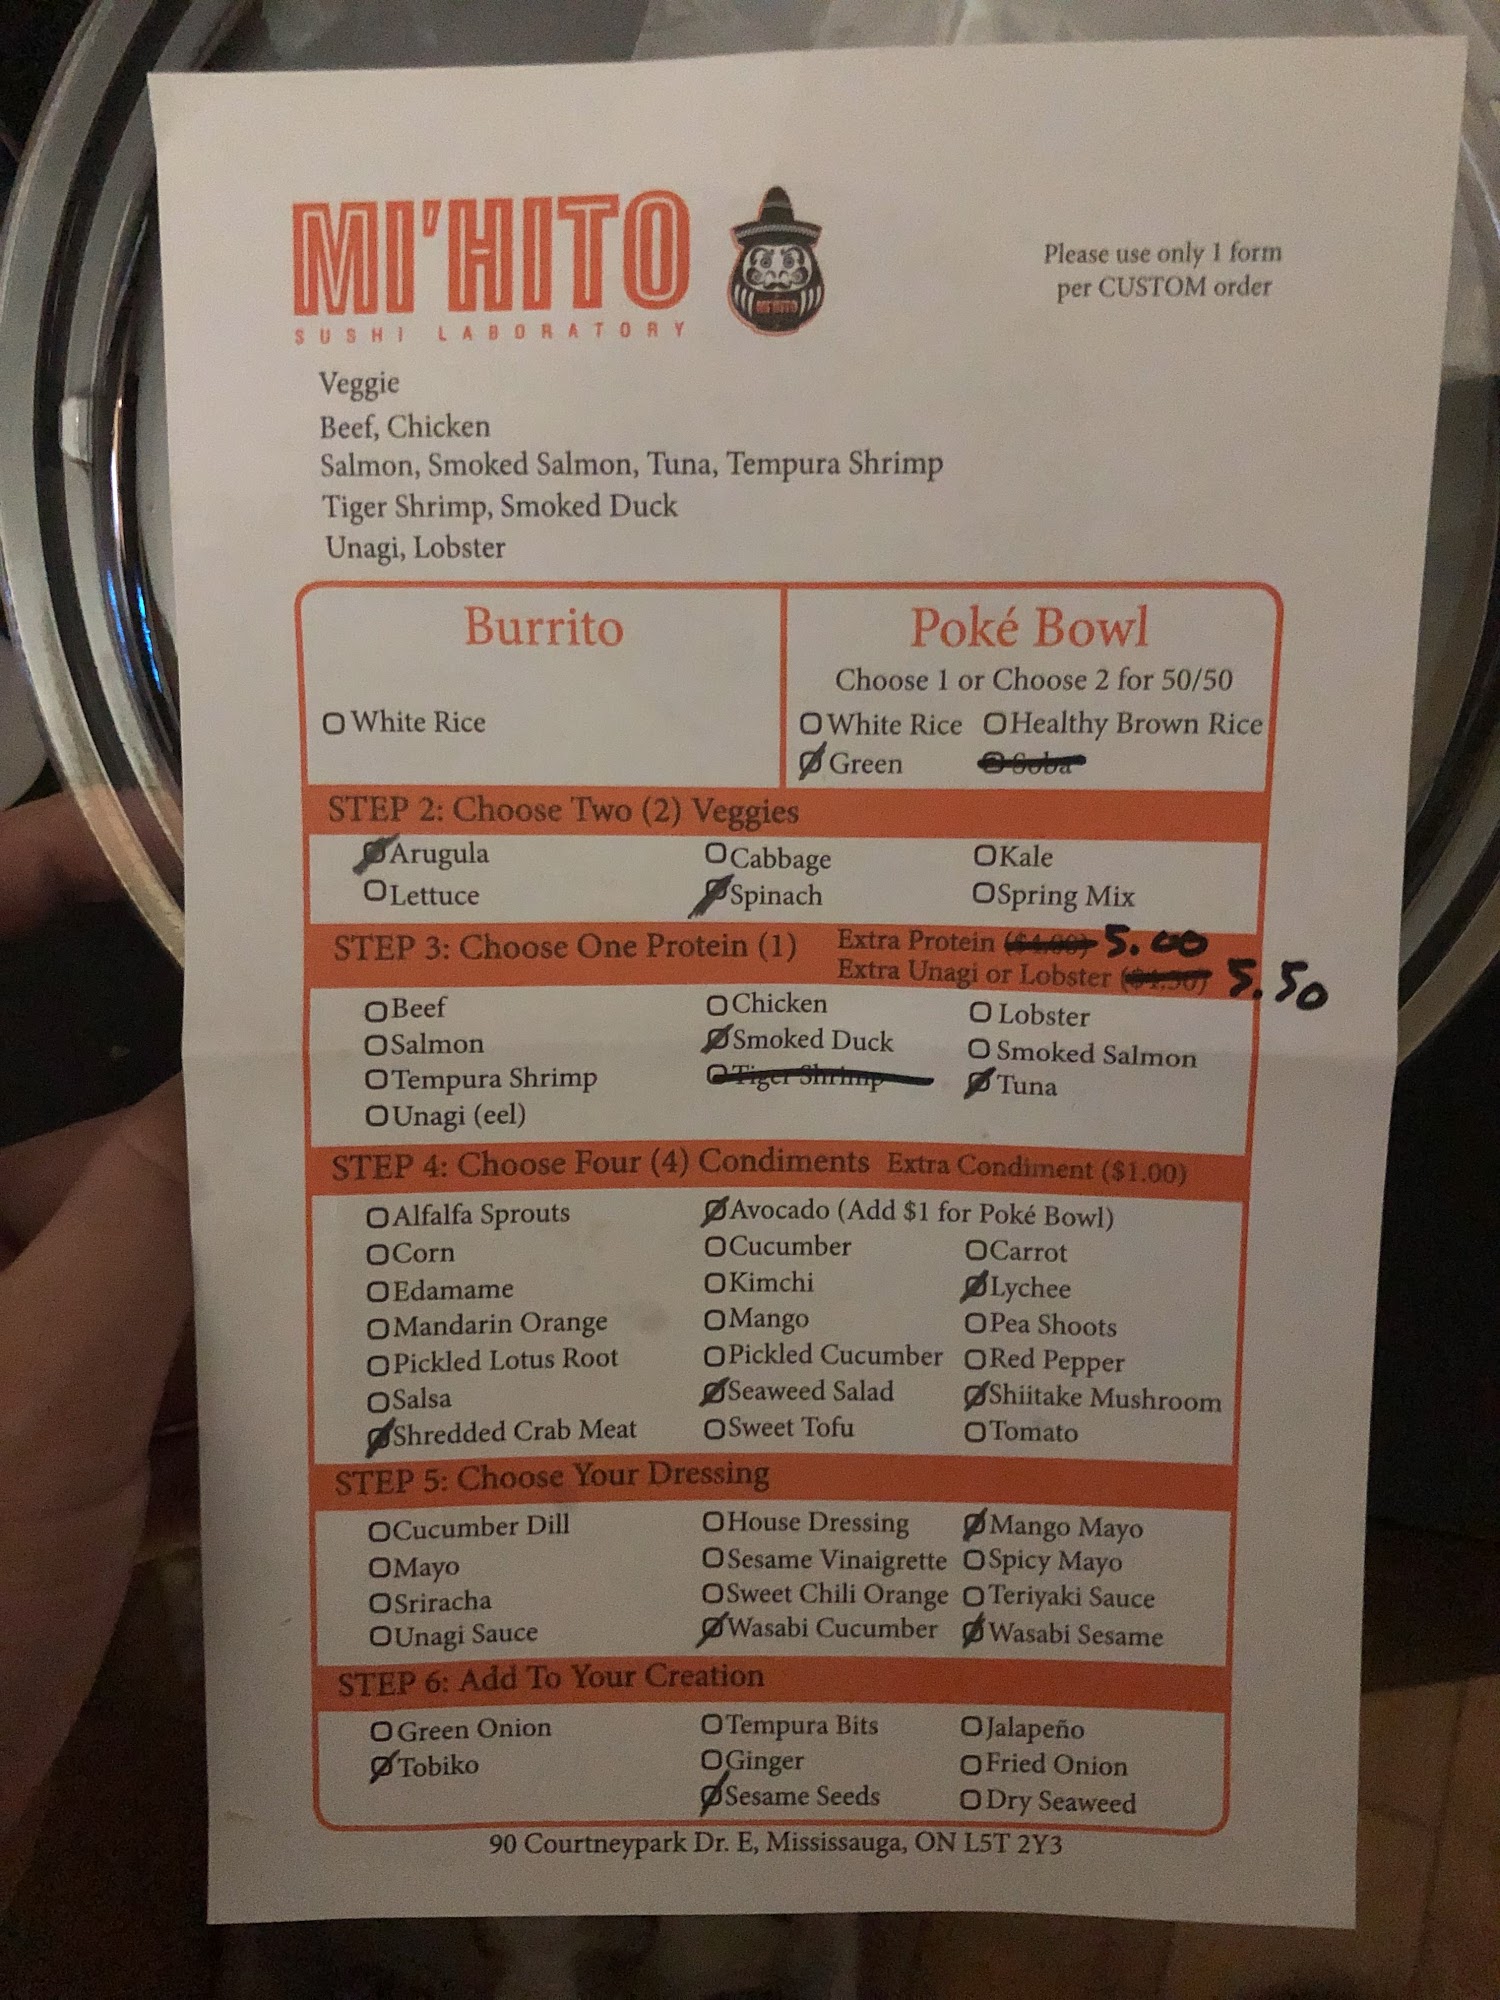 MI'HITO
SUSHI LABORATORY
MI'HITO
Please use only 1 form
per CUSTOM order
Veggie
Beef, Chicken
Salmon, Smoked Salmon, Tuna, Tempura Shrimp
Tiger Shrimp, Smoked Duck
Unagi, Lobster
Burrito
White Rice
Poké Bowl
Choose 1 or Choose 2 for 50/50
White Rice Healthy Brown Rice
Green Soba
STEP 2: Choose Two (2) Veggies
Arugula Cabbage Kale
Lettuce Spinach Spring Mix
STEP 3: Choose One Protein (1) Extra Protein ($4.00) 5.00
Extra Unagi or Lobster ($4.50) 5.50
Beef Chicken Lobster
Salmon Smoked Duck Smoked Salmon
Tempura Shrimp Tiger Shrimp Tuna
Unagi (eel)
STEP 4: Choose Four (4) Condiments Extra Condiment ($1.00)
Alfalfa Sprouts Avocado (Add $1 for Poké Bowl)
Corn Cucumber Carrot
Edamame Kimchi Lychee
Mandarin Orange Mango Pea Shoots
Pickled Lotus Root Pickled Cucumber Red Pepper
Salsa Seaweed Salad Shiitake Mushroom
Shredded Crab Meat Sweet Tofu Tomato
STEP 5: Choose Your Dressing
Cucumber Dill House Dressing Mango Mayo
Mayo Sesame Vinaigrette Spicy Mayo
Sriracha Sweet Chili Orange Teriyaki Sauce
Unagi Sauce Wasabi Cucumber Wasabi Sesame
STEP 6: Add To Your Creation
Green Onion Tempura Bits Jalapeño
Tobiko Ginger Fried Onion
Sesame Seeds Dry Seaweed
90 Courtneypark Dr. E, Mississauga, ON L5T 2Y3